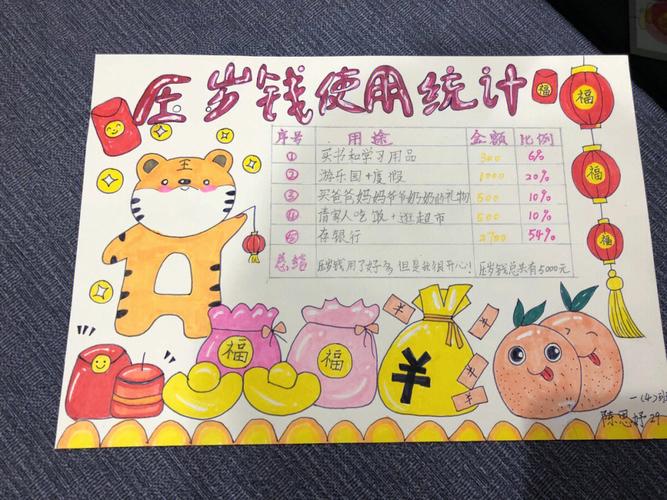 压岁钱使用统计
福
序号 用途 金额 比例
① 买书和学习用品 300 6%
② 游乐园+度假 1000 20%
③ 买爸爸妈妈爷爷奶奶的礼物 500 10%
④ 请家人吃饭+逛超市 500 10%
⑤ 存银行 2700 54%
总结 压岁钱用了好多,但是我很开心! 压岁钱总共有5000元
王
福
福
福
福
福
¥
¥
¥
¥
一(4)班
陈思妤 29